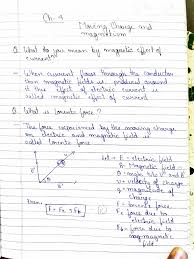 Ch. 4
Moving Charge and
magnetism
Q. What do you mean by magnetic effect of
current?
→ When current flows through the conductor
than magnetic fields is produced around
it this effect of electric current is
called magnetic effect of current
Q. What is lorentz force?
→ The force experienced by the moving charge
on electric and magnetic field is
called lorentz force
let E = electric field
B = magnetic field
θ = angle b/w E and B
v = velocity of charge
q = magnitude of
charge
F = lorentz force
Fe = force due to
electric field
FB = force due to
magnetic
field